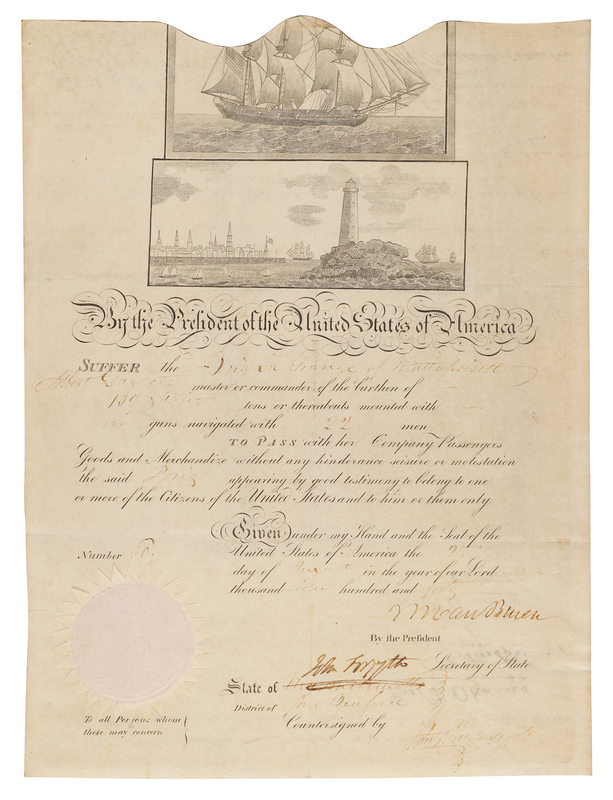 By the President of the United States of America
SUFFER the Brig Exchange of
Albert master or commander of the burthen of
tons or thereabouts mounted with
guns navigated with 22 men
TO PASS with her Company Passengers
Goods and Merchandize without any hinderance seisure or molestation
the said Brig appearing by good testimony to belong to one
or more of the Citizens of the United States and to him or them only
Given under my Hand and the Seal of the
United States of America the
day of in the year of our Lord
thousand hundred and forty
M Van Buren
By the President
John Forsyth Secretary of State
State of
District of
Countersigned by
Number
To all Persons whom
these may concern